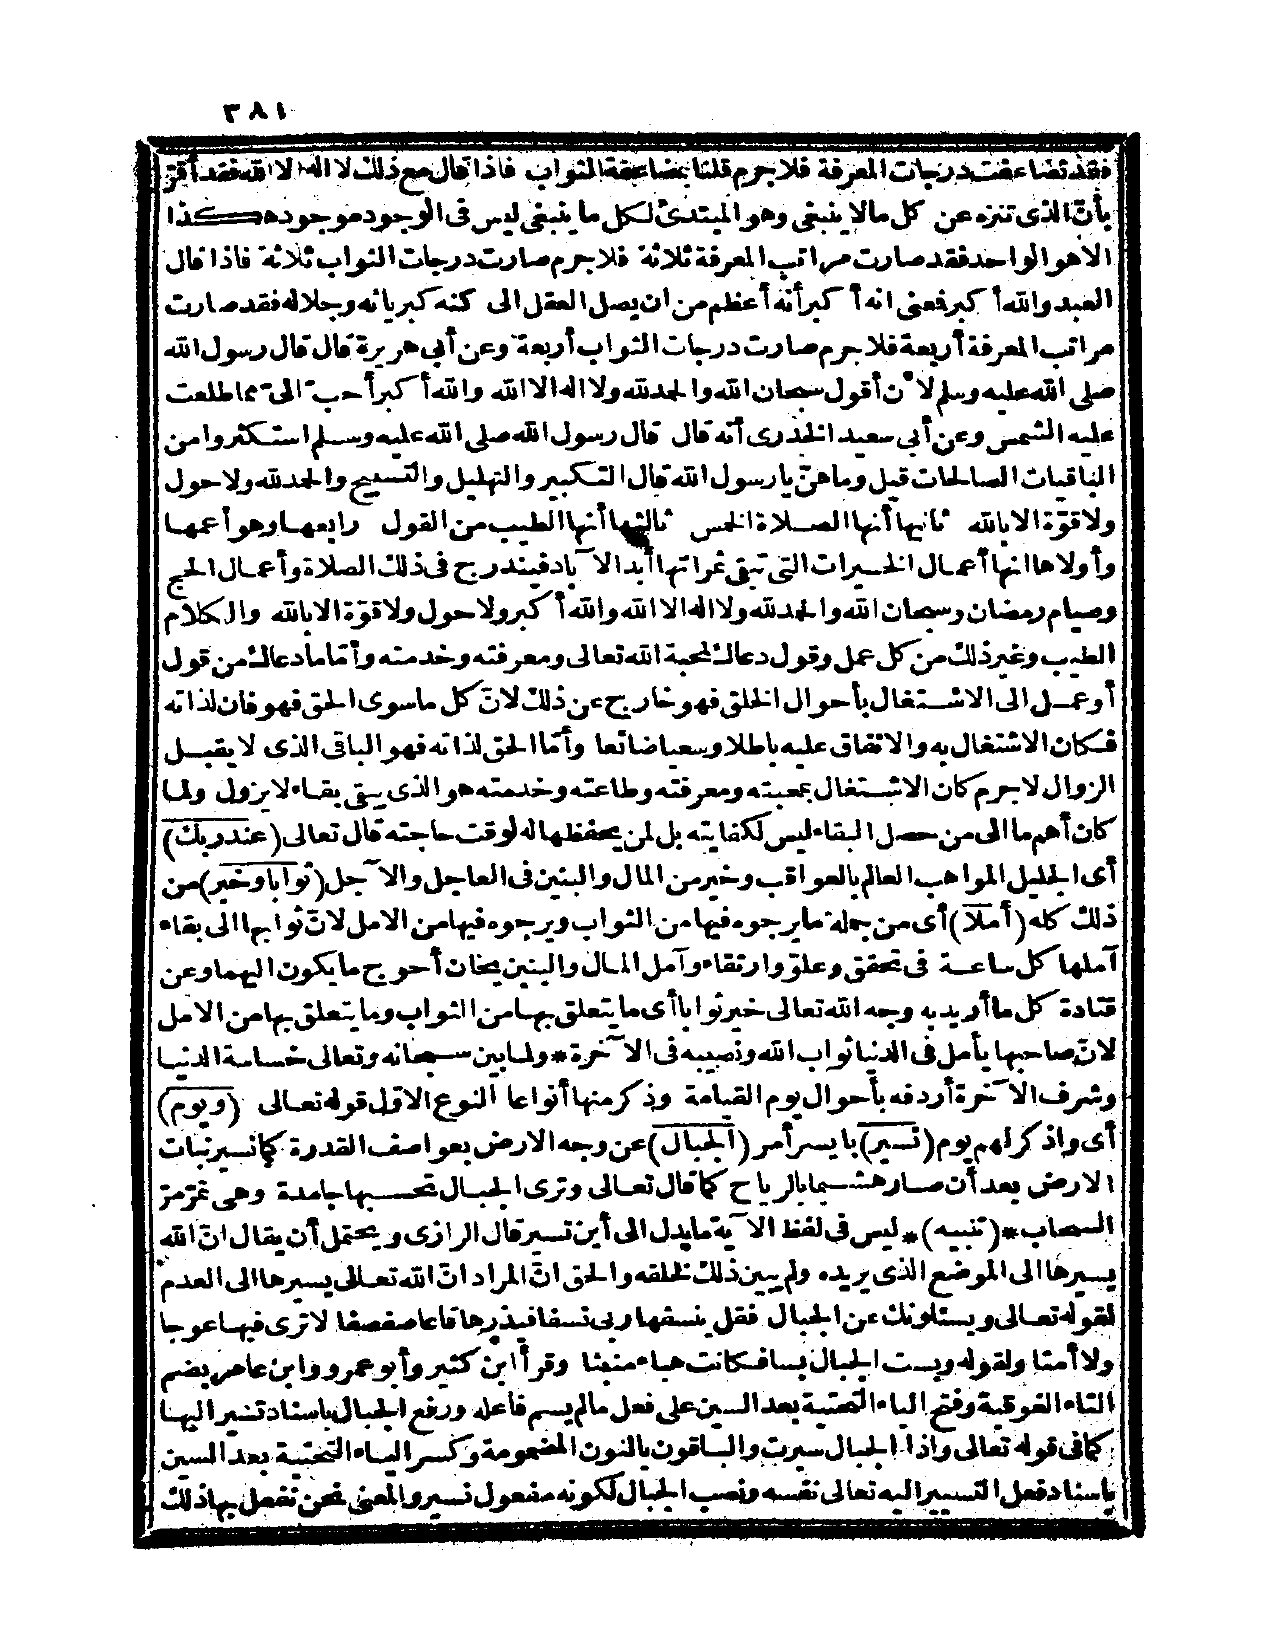 ٣٨١
فقد تضاعفت درجات المعرفة فلا جرم قلنا بمضاعفة الثواب فاذا قال مع ذلك لا اله الا الله فقد أقرّ
بأنّ الذى تنزه عن كل مالا ينبغى وهو المبتدئ لكل ما ينبغى ليس فى الوجود موجود هكذا
الا هو الواحد فقد صارت مراتب المعرفة ثلاثة فلا جرم صارت درجات الثواب ثلاثة فاذا قال
العبد والله أكبر فعنى انه أكبر أنه أعظم من ان يصل العقل الى كنه كبريائه وجلاله فقد صارت
مراتب المعرفة أربعة فلا جرم صارت درجات الثواب أربعة وعن أبى هريرة قال قال رسول الله
صلى الله عليه وسلم لا ٔن أقول سبحان الله والحمد لله ولا اله الا الله والله أكبر أحبّ الىّ مما طلعت
عليه الشمس وعن أبى سعيد الخدرى أنه قال قال رسول الله صلى الله عليه وسلم استكثروا من
الباقيات الصالحات قيل وماهنّ يا رسول الله قال التكبير والتهليل والتسبيح والحمد لله ولا حول
ولا قوّة الا بالله ثانيها أنها الصلاة الخمس ثالثها أنها الطيب من القول رابعها وهو أعمها
وأولاها انها أعمال الخيرات التى تبقى ثمراتها أبد الا ٓباد فيندرج فى ذلك الصلاة وأعمال الحج
وصيام رمضان وسبحان الله والحمد لله ولا اله الا الله والله أكبر ولا حول ولا قوّة الا بالله والكلام
الطيب وغير ذلك من كل عمل وقول دعاك لمحبة الله تعالى ومعرفته وخدمته وأمّا ما دعاك من قول
أو عمل الى الاشتغال بأحوال الخلق فهو خارج عن ذلك لانّ كل ما سوى الحق فهو فان لذاته
فكان الاشتغال به والاتفاق عليه باطلا وسعيا ضائعا وأمّا الحق لذاته فهو الباقى الذى لا يقبل
الزوال لا جرم كان الاشتغال بمحبته ومعرفته وطاعته وخدمته هو الذى يبقى بقاء لا يزول ولما
كان أهم ما الى من حصل البقاء ليس لكفايته بل لمن يحفظها له لوقت حاجته قال تعالى (عند ربك)
أى الجليل المواهب العالم بالعواقب وخير من المال والبنين فى العاجل والا ٓجل (ثوابا وخير) من
ذلك كله (أملا) أى من جملة ما يرجوه فيها من الثواب ويرجوه فيها من الامل لانّ ثوابها الى بقاء
آملها كل ساعة فى تحقق وعلوّ وارتقاء وآمل المال والبنين يخان أحوج ما يكون اليهما وعن
قتادة كل ما أريد به وجه الله تعالى خير ثوابا أى ما يتعلق بها من الثواب وما يتعلق بها من الامل
لانّ صاحبها يأمل فى الدنيا ثواب الله ونصيبه فى الا ٓخرة * ولما بين سبحانه وتعالى خساسة الدنيا
وشرف الا ٓخرة أردفه بأحوال يوم القيامة وذكر منها أنواعا النوع الاوّل قوله تعالى (ويوم)
أى واذكر لهم يوم (تسير) بايسر أمر (الجبال) عن وجه الارض بعواصف القدرة كما تسير نبات
الارض بعد أن صار هشيما بالرياح كما قال تعالى وترى الجبال تحسبها جامدة وهى تمرّ مرّ
السحاب * (تنبيه) * ليس فى لفظ الا ٓية ما يدل الى أين تسير قال الرازى ويحتمل أن يقال انّ الله
يسيرها الى الموضع الذى يريده ولم يبين ذلك لخلقه والحق انّ المراد انّ الله تعالى يسيرها الى العدم
لقوله تعالى ويسئلونك عن الجبال فقل ينسفها ربى نسفا فيذرها قاعا صفصفا لا ترى فيها عوجا
ولا أمتا ولقوله وبست الجبال بسا فكانت هباء منبثا وقرأ ابن كثير وأبو عمرو وابن عامر بضم
التاء الفوقية وفتح الياء التحتية بعد السين على فعل ما لم يسم فاعله ورفع الجبال باسناد تسير اليها
كما فى قوله تعالى واذا الجبال سيرت والباقون بالنون المضمومة وكسر الياء التحتية بعد السين
باسناد فعل التسيير اليه تعالى نفسه ونصب الجبال لكونه مفعول نسير والمعنى نحن نفعل بها ذلك